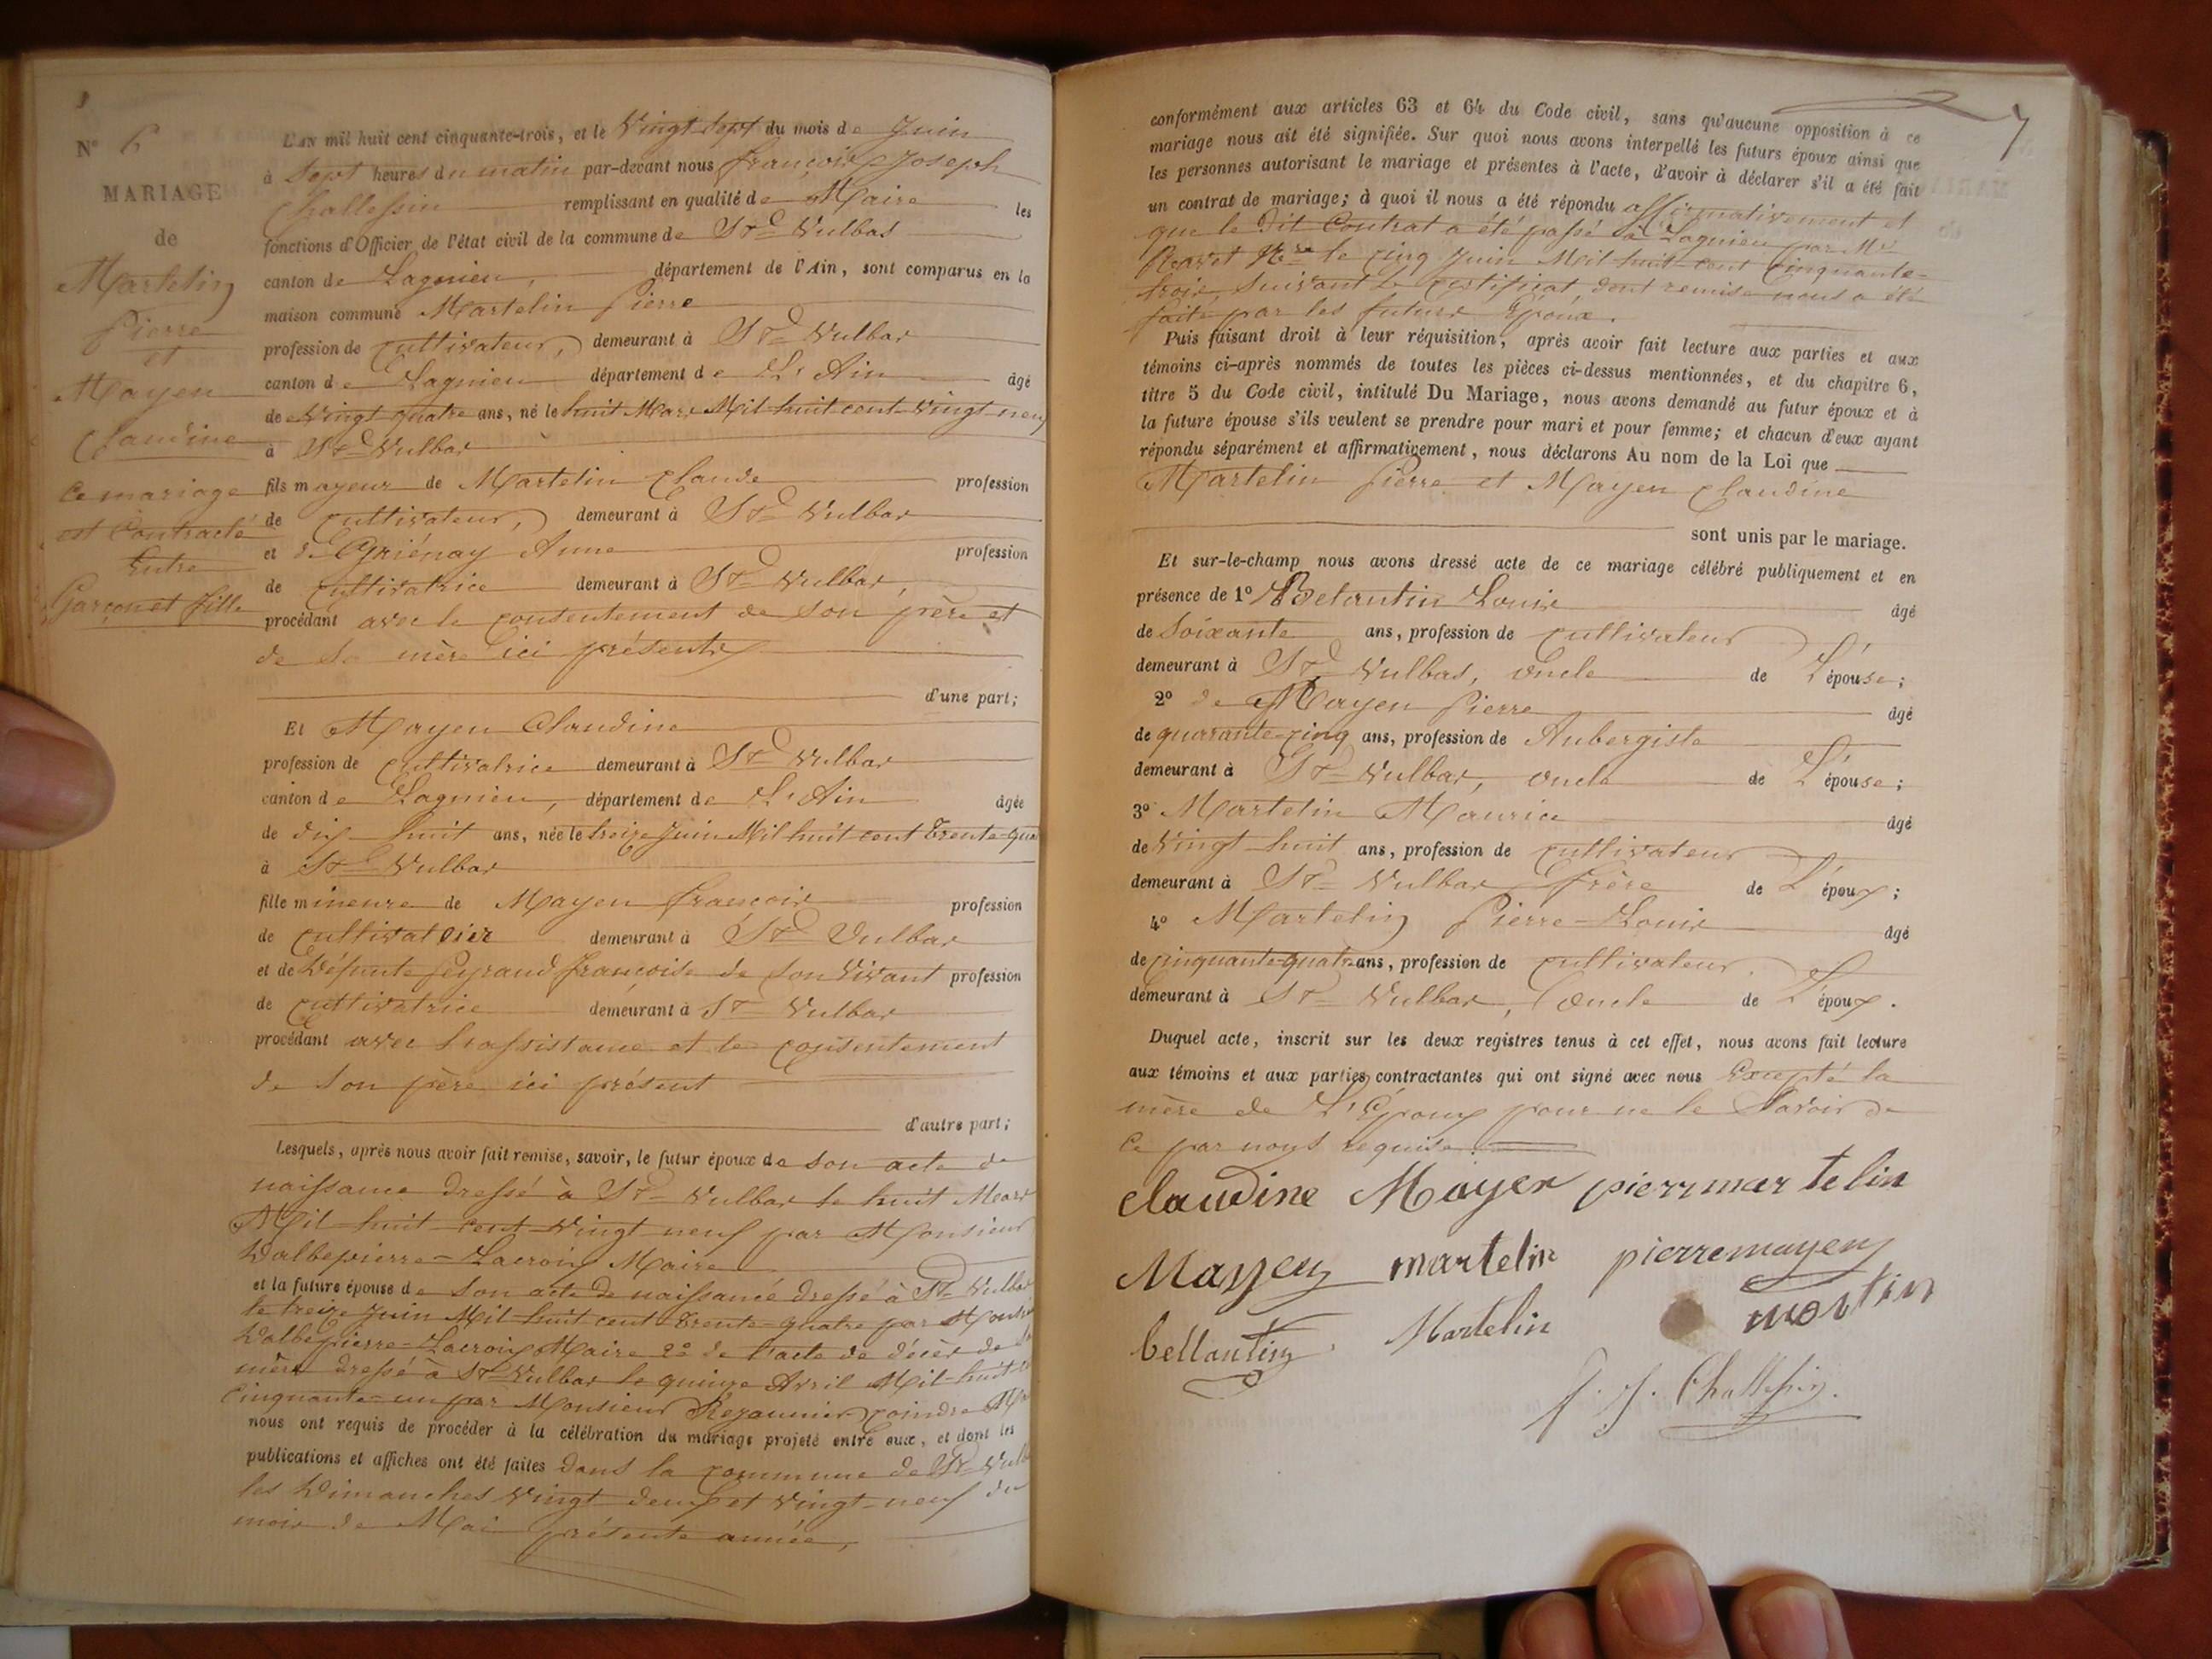 N° 6
MARIAGE
de
Martelin
Pierre
et
Mayen
Claudine
Ce mariage
est Contracté
Entre
Garçon et fille
L'AN mil huit cent cinquante-trois, et le Vingt Sept du mois de Juin
à Sept heures du matin par-devant nous françois Joseph
Challessin remplissant en qualité de Maire les
fonctions d'Officier de l'état civil de la commune de St Vulbas
canton de Lagnieu, département de l'Ain, sont comparus en la
maison commune Martelin Pierre
profession de cultivateur, demeurant à St Vulbas
canton de Lagnieu département de L'Ain âgé
de Vingt quatre ans, né le huit Mars Mil huit cent Vingt neuf
à St Vulbas
fils mayeur de Martelin Claude profession
de cultivateur, demeurant à St Vulbas
et de Anne profession
de cultivatrice demeurant à St Vulbas,
procédant avec le consentement de son père et
de sa mère ici présents
d'une part;
Et Mayen Claudine
profession de cultivatrice demeurant à St Vulbas
canton de Lagnieu, département de L'Ain âgée
de dix huit ans, née le treize Juin Mil huit cent Trente-qua
à St Vulbas
fille mineure de Mayen françois profession
de demeurant à St Vulbas
et de Défunte Peyraud françoise de son Vivant profession
de cultivatrice demeurant à St Vulbas
procédant avec l'assistance et le consentement
de son père ici présent
d'autre part;
Lesquels, après nous avoir fait remise, savoir, le futur époux de son acte de
naissance dressé à St Vulbas le huit Mars
Mil huit cent Vingt neuf par Monsieur
Dalbepierre-Lacroix Maire
et la future épouse de son acte de naissance dressé à St Vulbas
le treize Juin Mil huit cent Trente-quatre par
Dalbepierre-Lacroix Maire 2° de l'acte de décès de sa
mère dressé à St Vulbas le quinze Avril Mil-huit
Cinquante-un par Monsieur
nous ont requis de procéder à la célébration du mariage projeté entre eux, et dont les
publications et affiches ont été faites dans la commune de St Vulbas
les Dimanches Vingt deux et Vingt-neuf du
mois de Mai présente année,
7
conformément aux articles 63 et 64 du Code civil, sans qu'aucune opposition à ce
mariage nous ait été signifiée. Sur quoi nous avons interpellé les futurs époux ainsi que
les personnes autorisant le mariage et présentes à l'acte, d'avoir à déclarer s'il a été fait
un contrat de mariage; à quoi il nous a été répondu affirmativement et
que le dit Contrat a été passé à Lagnieu par Me
Nre le cinq Juin Mil huit cent cinquante-
trois, Suivant le certificat dont remise nous a été
faite par les futurs Époux.
Puis faisant droit à leur réquisition, après avoir fait lecture aux parties et aux
témoins ci-après nommés de toutes les pièces ci-dessus mentionnées, et du chapitre 6,
titre 5 du Code civil, intitulé Du Mariage, nous avons demandé au futur époux et à
la future épouse s'ils veulent se prendre pour mari et pour femme; et chacun d'eux ayant
répondu séparément et affirmativement, nous déclarons Au nom de la Loi que
Martelin Pierre et Mayen Claudine
sont unis par le mariage.
Et sur-le-champ nous avons dressé acte de ce mariage célébré publiquement et en
présence de 1° Betantin Louis âgé
de Soixante ans, profession de cultivateur
demeurant à St Vulbas, Oncle de L'épouse;
2° de Mayen Pierre âgé
de quarante-cinq ans, profession de Aubergiste
demeurant à St Vulbas, Oncle de L'épouse;
3° Martelin Maurice âgé
de Vingt huit ans, profession de cultivateur
demeurant à St Vulbas, frère de L'époux;
4° Martelin Pierre-Louis âgé
de cinquante-quatre ans, profession de cultivateur
demeurant à St Vulbas, Oncle de L'époux.
Duquel acte, inscrit sur les deux registres tenus à cet effet, nous avons fait lecture
aux témoins et aux parties contractantes qui ont signé avec nous Excepté la
mère de L'Époux pour ne le Savoir de
Ce par nous requise
claudine Mayen pierrmartelin
Mayen martelin pierremayen
bellantin Martelin martin
f. J. Challessin.